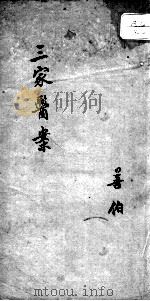 三家醫案
善伯
研狗
mtoou.info